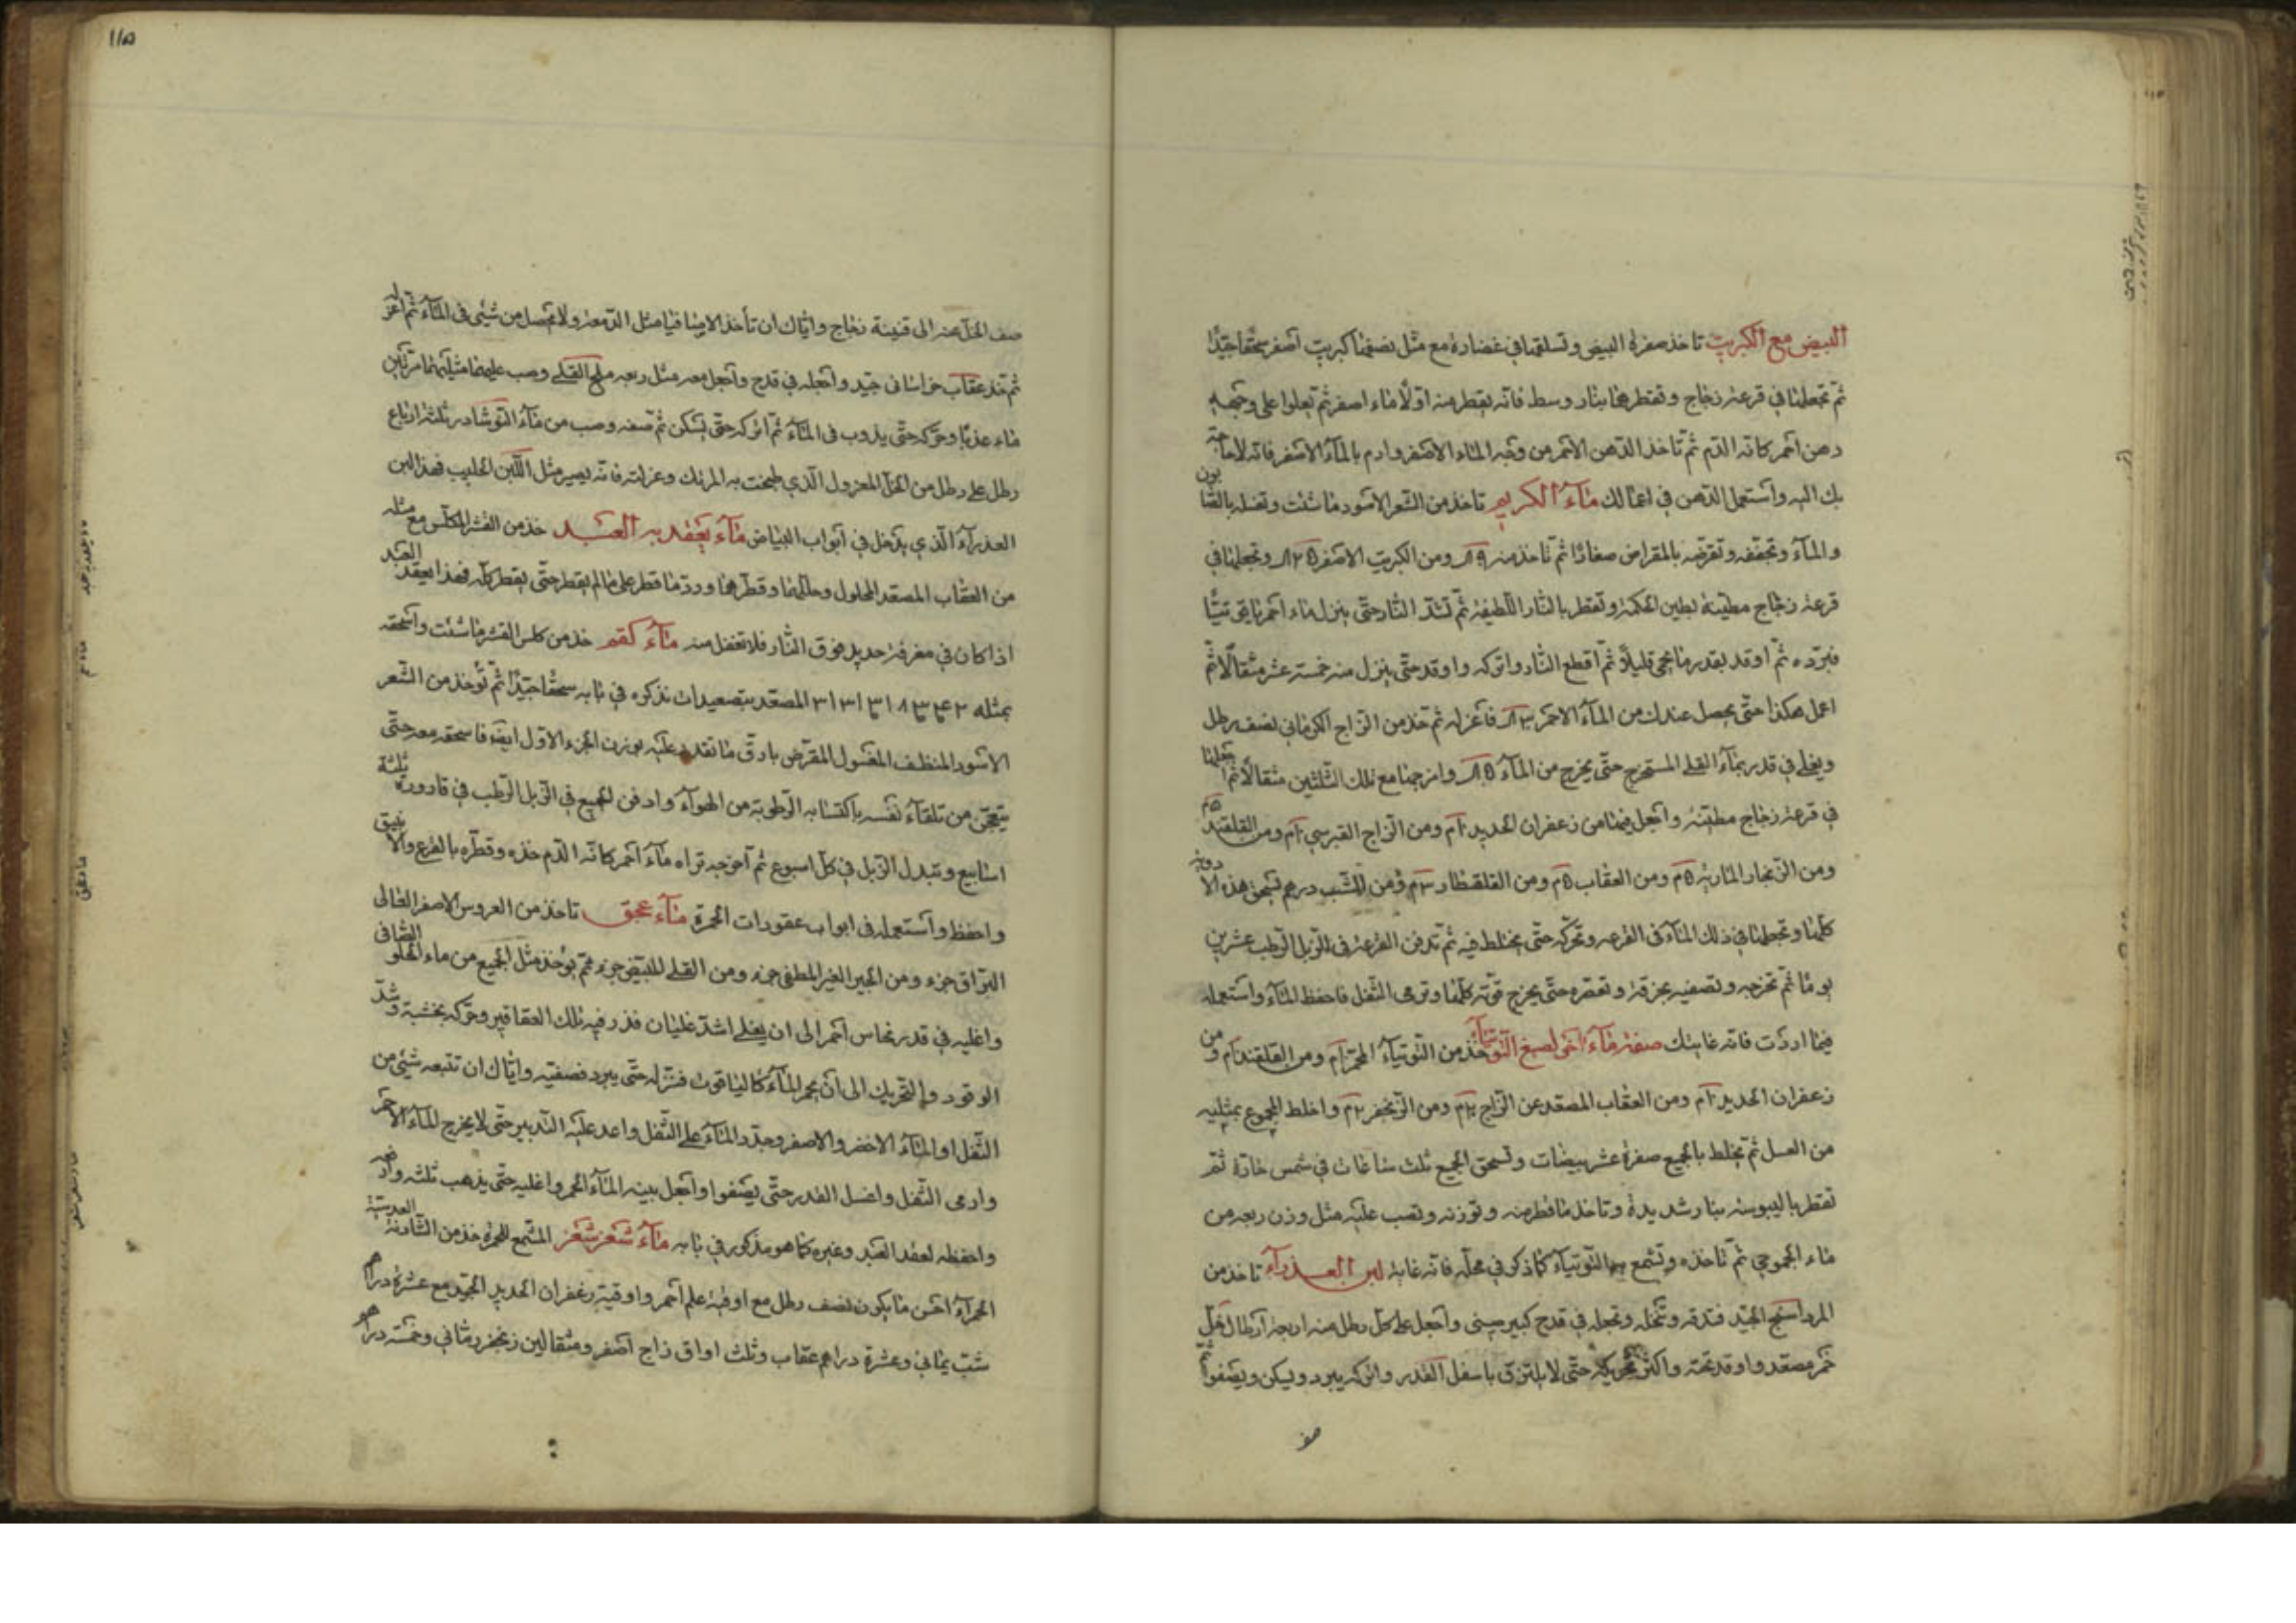 البيض مع الكبريت تاخذ صفرة البيض وتسلقها في غضارة مع مثل نصفها كبريت اصفر سحقا جيدا
ثم تجعلها في قرعة زجاج وتقطرها بنار وسط فانه يقطر منه اولا ماء اصفر ثم يعلوا على وجهه
دهن احمر كانه الدم ثم تاخذ الدهن الاحمر من وجه الماء الاصفر وارم بالماء الاصفر فانه لا حاجة
بك اليه واستعمل الدهن في اعمالك ماء الكريم تاخذ من الشعر الاسود ما شئت وتغسله بالصابون
والماء وتجففه وتقرضه بالمقراض صغارا ثم تاخذ منه ومن الكبريت الاصفر وتجعلها في
قرعة زجاج مطينة بطين الحكمة وتقطر بالنار اللطيفة ثم تشد النار حتى ينزل ماء احمر ياقوتيا
فبرده ثم اوقد بقدر ما يحمى قليلا ثم اقطع النار واتركه واوقد حتى ينزل منه خمسة عشر مثقالا ثم
اعمل هكذا حتى يحصل عندك من الماء الاحمر فاعزله ثم خذ من الزاج الكرماني نصف رطل
ويغلى في قدر بماء القلى المستخرج حتى يخرج من الماء وامزجها مع تلك الثلثين مثقالا ثم تجعلها
في قرعة زجاج مطينة واجعل فيها من زعفران الحديد ومن الزاج القبرسي ومن القلقند
ومن الزنجار ومن العقاب ومن القلقطار ومن الشب درهم تسحق هذه الادوية
كلها وتجعلها في ذلك الماء في القرعة وتحركه حتى يختلط فيه ثم تدفن القرعة في الزبل الرطب عشرين
يوما ثم تخرجه وتصفيه بخرقة وتعصره حتى يخرج قوته كلها وترمى الثفل فاحفظ الماء واستعمله
فيما اردت فانه غايتك صفة ماء اخر لصبغ التوتياء خذ من التوتياء المحمر ومن القلقند ومن
زعفران الحديد ومن العقاب المصعد عن الزاج ومن الزنجفر واخلط المجموع بمثليه
من العسل ثم يخلط بالجميع صفرة عشر بيضات وتسحق الجميع ثلث ساعات في شمس حارة ثم
تقطر باليبوسة بنار شديدة وتاخذ ما قطر منه وتوزنه وتصب عليه مثل وزن ربعه من
ماء ثم تاخذه وتشمع به التوتياء كما ذكر في محله فانه غاية لبن العذراء تاخذ من
المرداسنج الجيد فتدقه وتنخله وتجعله في قدح كبير صيني واجعل على كل رطل منه اربعة ارطال خل
خمر مصعد واوقد تحته واكثر تحريكه حتى لا يلتزق باسفل القدر واتركه يبرد ويسكن ويصفوا ثم
صف
١١٥
صف الخل عنه الى قنينة زجاج واياك ان تأخذ الا صافيا مثل الدمعة ولا يحصل من شيئ في الماء ثم اعزله
ثم خذ عقاب خراسانى جيد واجعله في قدح واجعل معه مثل ربعه ملح القلى وصب عليهما مثليهما مرتين
ماء عذبا وحركه حتى يذوب في الماء ثم اتركه حتى يسكن ثم صفه وصب من ماء النوشادر ثلثة ارباع
رطل على رطل من الخل المعزول الذي طبخت به المرتك وعزلته فانه يصير مثل اللبن الحليب فهذا لبن
العذراء الذي يدخل في ابواب البياض ماء يعقد به العبد خذ من القشر المكلس مع مثله
من العقاب المصعد المحلول وحللها وقطرها ورد ما قطر على ما لم يقطر حتى يقطر كله فهذا يعقد العبد
اذا كان في مغرفة حديد فوق النار فلا تغفل منه ماء كقم خذ من كلس القشر ما شئت واسحقه
بمثله المصعد بتصعيدات نذكره في بابه سحقا جيدا ثم تؤخذ من الشعر
الاسود المنظف المغسول المقرض بادق ما تقدر عليه بوزن الجزء الاول ايضا فاسحقه معه حتى
من تلقاء نفسه باكتسابه الرطوبة من الهواء وادفن الجميع في الزبل الرطب في قارورة ثلثة
اسابيع وتبدل الزبل في كل اسبوع ثم اخرجه تراه ماء احمر كانه الدم خذه وقطره بالقرع والانبيق
واحفظ واستعمله في ابواب عقودات الحمرة ماء عجق تاخذ من العروس الاصفر الغالى
البراق جزء ومن الجير الغير المطفى جزء ومن القلى المبيض جزء ثم يؤخذ مثل الجميع من ماء الحلو الصافى
واغليه في قدر نحاس احمر الى ان يغلى اشد غليان فذر فيه تلك العقاقير وحركه بخشبة وشد
الوقود والتحريك الى ان يحمر الماء كالياقوت فنزله حتى يبرد فصفيه واياك ان تتبعه شيئ من
الثفل او الماء الاخضر والاصفر وجدد الماء على الثفل واعد عليه التدبير حتى لا يخرج الماء الاحمر
وارمى الثفل واغسل القدر حتى يصفوا واجعل بينه الماء الحمر واغليه حتى يذهب ثلثه وارفعه
واحفظه لعقد العبد وغيره كما هو مذكور في بابه ماء شعز شعز المشمع للحمرة خذ من الشادنة العدسية
الحمراء احسن ما يكون نصف رطل مع اوقية علم احمر واوقية زعفران الحديد الجيد مع عشرة دراهم
شب يمانى وعشرة دراهم عقاب وثلث اواق زاج اصفر ومثقالين زنجفر رمانى وخمسة دراهم